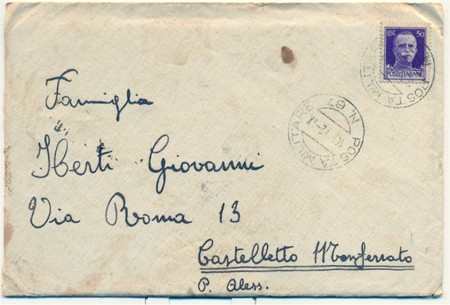 50
POSTA MILITARE N. 67
Famiglia
Iberti Giovanni
Via Roma 13
Castelletto Monferrato
P. Aless.